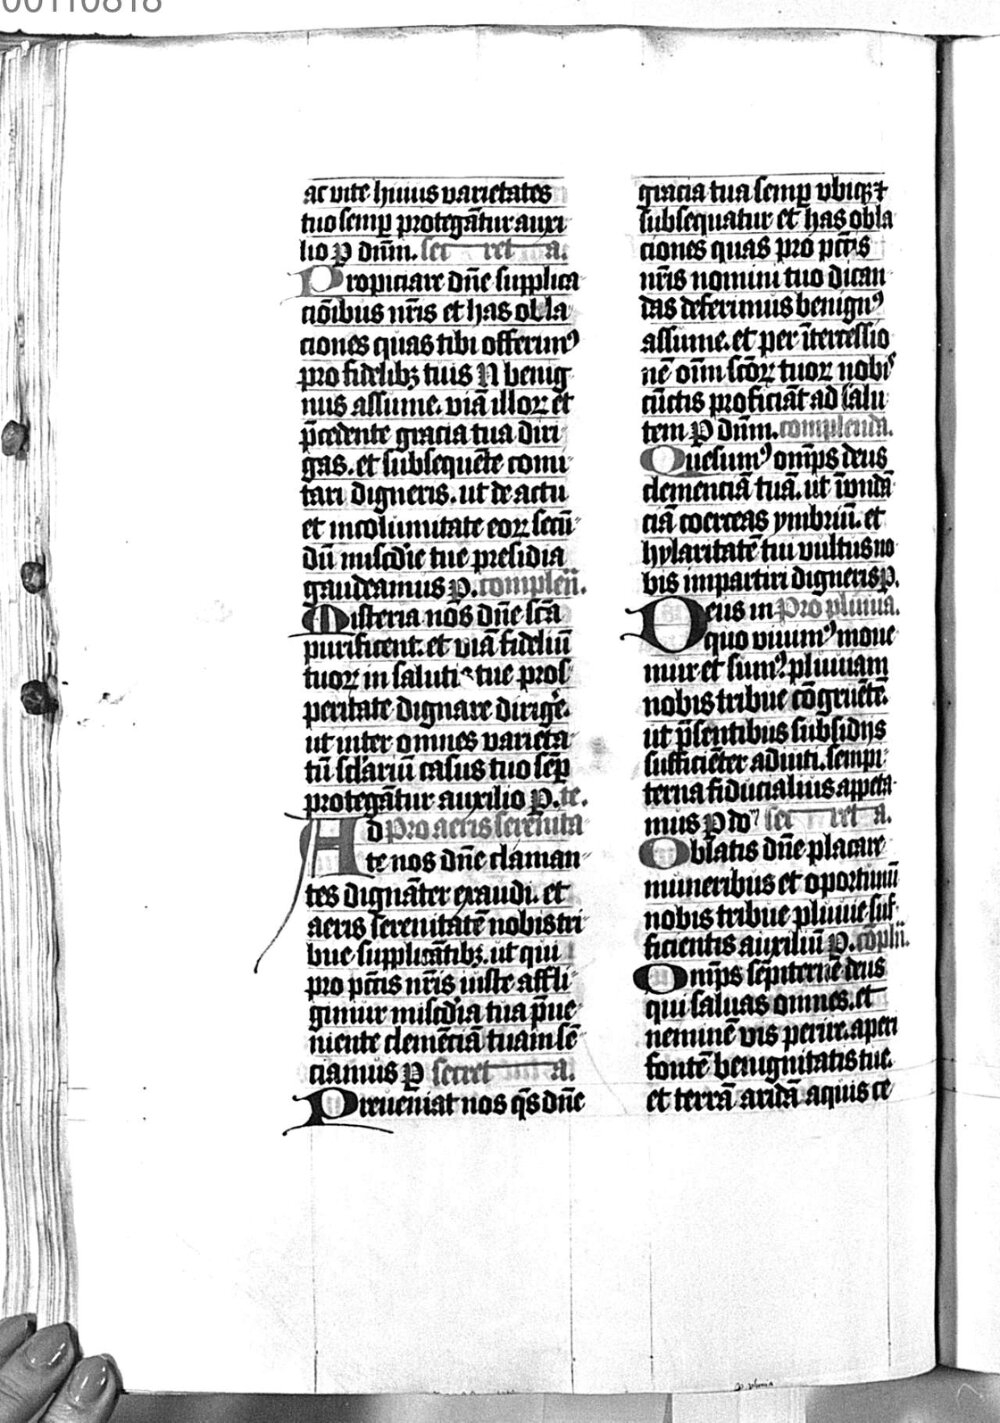 00110818
ac vite huius varietates
tuo semꝑ protegãtur auxi
lio ꝑ dñm. secreta.
Propiciare dñe supplica
ciõibus nr̃is et has obla
ciones quas tibi offerimꝰ
pro fidelibꝫ tuis N benig
nus assume. viã illoꝝ et
p̃cedente gracia tua diri
gas. et subsequẽte comi
tari digneris. ut de actu
et incolumitate eoꝝ secũ
dũ mis̃c̃die tue presidia
gaudeamus ꝑ. compleñ.
Misteria nos dñe sc̃a
purificent. et viã fideliũ
tuoꝝ in salutis tue pros
peritate dignare dirig̃e.
ut inter omnes varieta
tũ sc̃lariũ casus tuo sẽp
protegãtur auxilio ꝑ. te.
Ad Pro aeris serenita
te nos dñe claman
tes dignãter exaudi. et
aeris serenitatẽ nobis tri
bue supplicãtibꝫ. ut qui
pro pc̃tis nr̃is iuste affli
gimur mis̃c̃dia tua p̃ue
niente clemẽciã tuam sẽ
ciamus ꝑ secreta.
Preueniat nos q̃s dñe
gracia tua semꝑ vbiqꝫ ⁊
subsequatur et has obla
ciones quas pro pc̃tis
nr̃is nomini tuo dican
das deferimus benignꝰ
assume. et per ĩtercessio
nẽ om̃ sc̃oꝝ tuoꝝ nobis
cũctis proficiãt ad salu
tem ꝑ dñm. complenda.
Quesumꝰ om̃ps deus
clemenciã tuã. ut ĩondã
ciã coerceas ymbriũ. et
hylaritatẽ tui vultus no
bis impartiri digneris ꝑ.
Deus in Pro pluuia.
quo viuimꝰ moue
mur et sumꝰ. pluuiam
nobis tribue cõgruẽtẽ.
ut p̃sentibus subsidijs
sufficiẽter adiuti. sempi
terna fiducialius appeta
mus ꝑ do secreta.
Oblatis dñe placare
muneribus et oportunũ
nobis tribue pluuie suf
ficientis auxiliũ ꝑ. cõplñ.
Om̃ps sẽpiterne deus
qui saluas omnes. et
neminẽ vis perire. aperi
fontẽ benignitatis tue.
et terrã aridã aquis ce
ꝓ pluuia